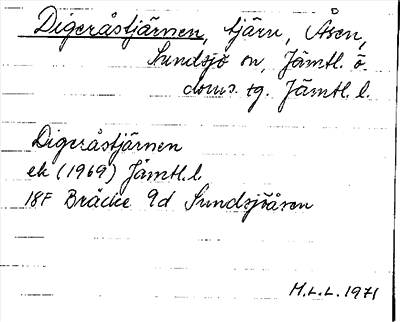 Digeråstjärnen, tjärn, Åsen,
Sundsjö sn, Jämtl. ö.
doms. tg. Jämtl. l.
Digeråstjärnen
ek (1969) Jämtl. l.
18F Bräcke 9d Sundsjöåsen
M.L.L. 1971